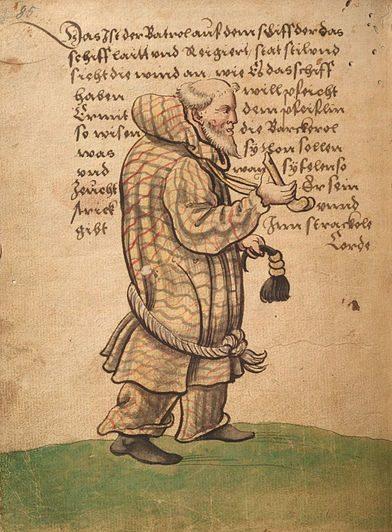 85
Das Ist der Patrol auf dem schiff der das
schiff laitt vnd Regiert, stat stil vnd
sicht die wind an, wie Er das schiff
haben will pfeicht
Er mitt dem pfeiflin
so wisen die Barckerol
was sy thon sollen
vnd wan sy felen so
Zeucht Er sein
strick vnnd
gibt Inn strackele
Corde